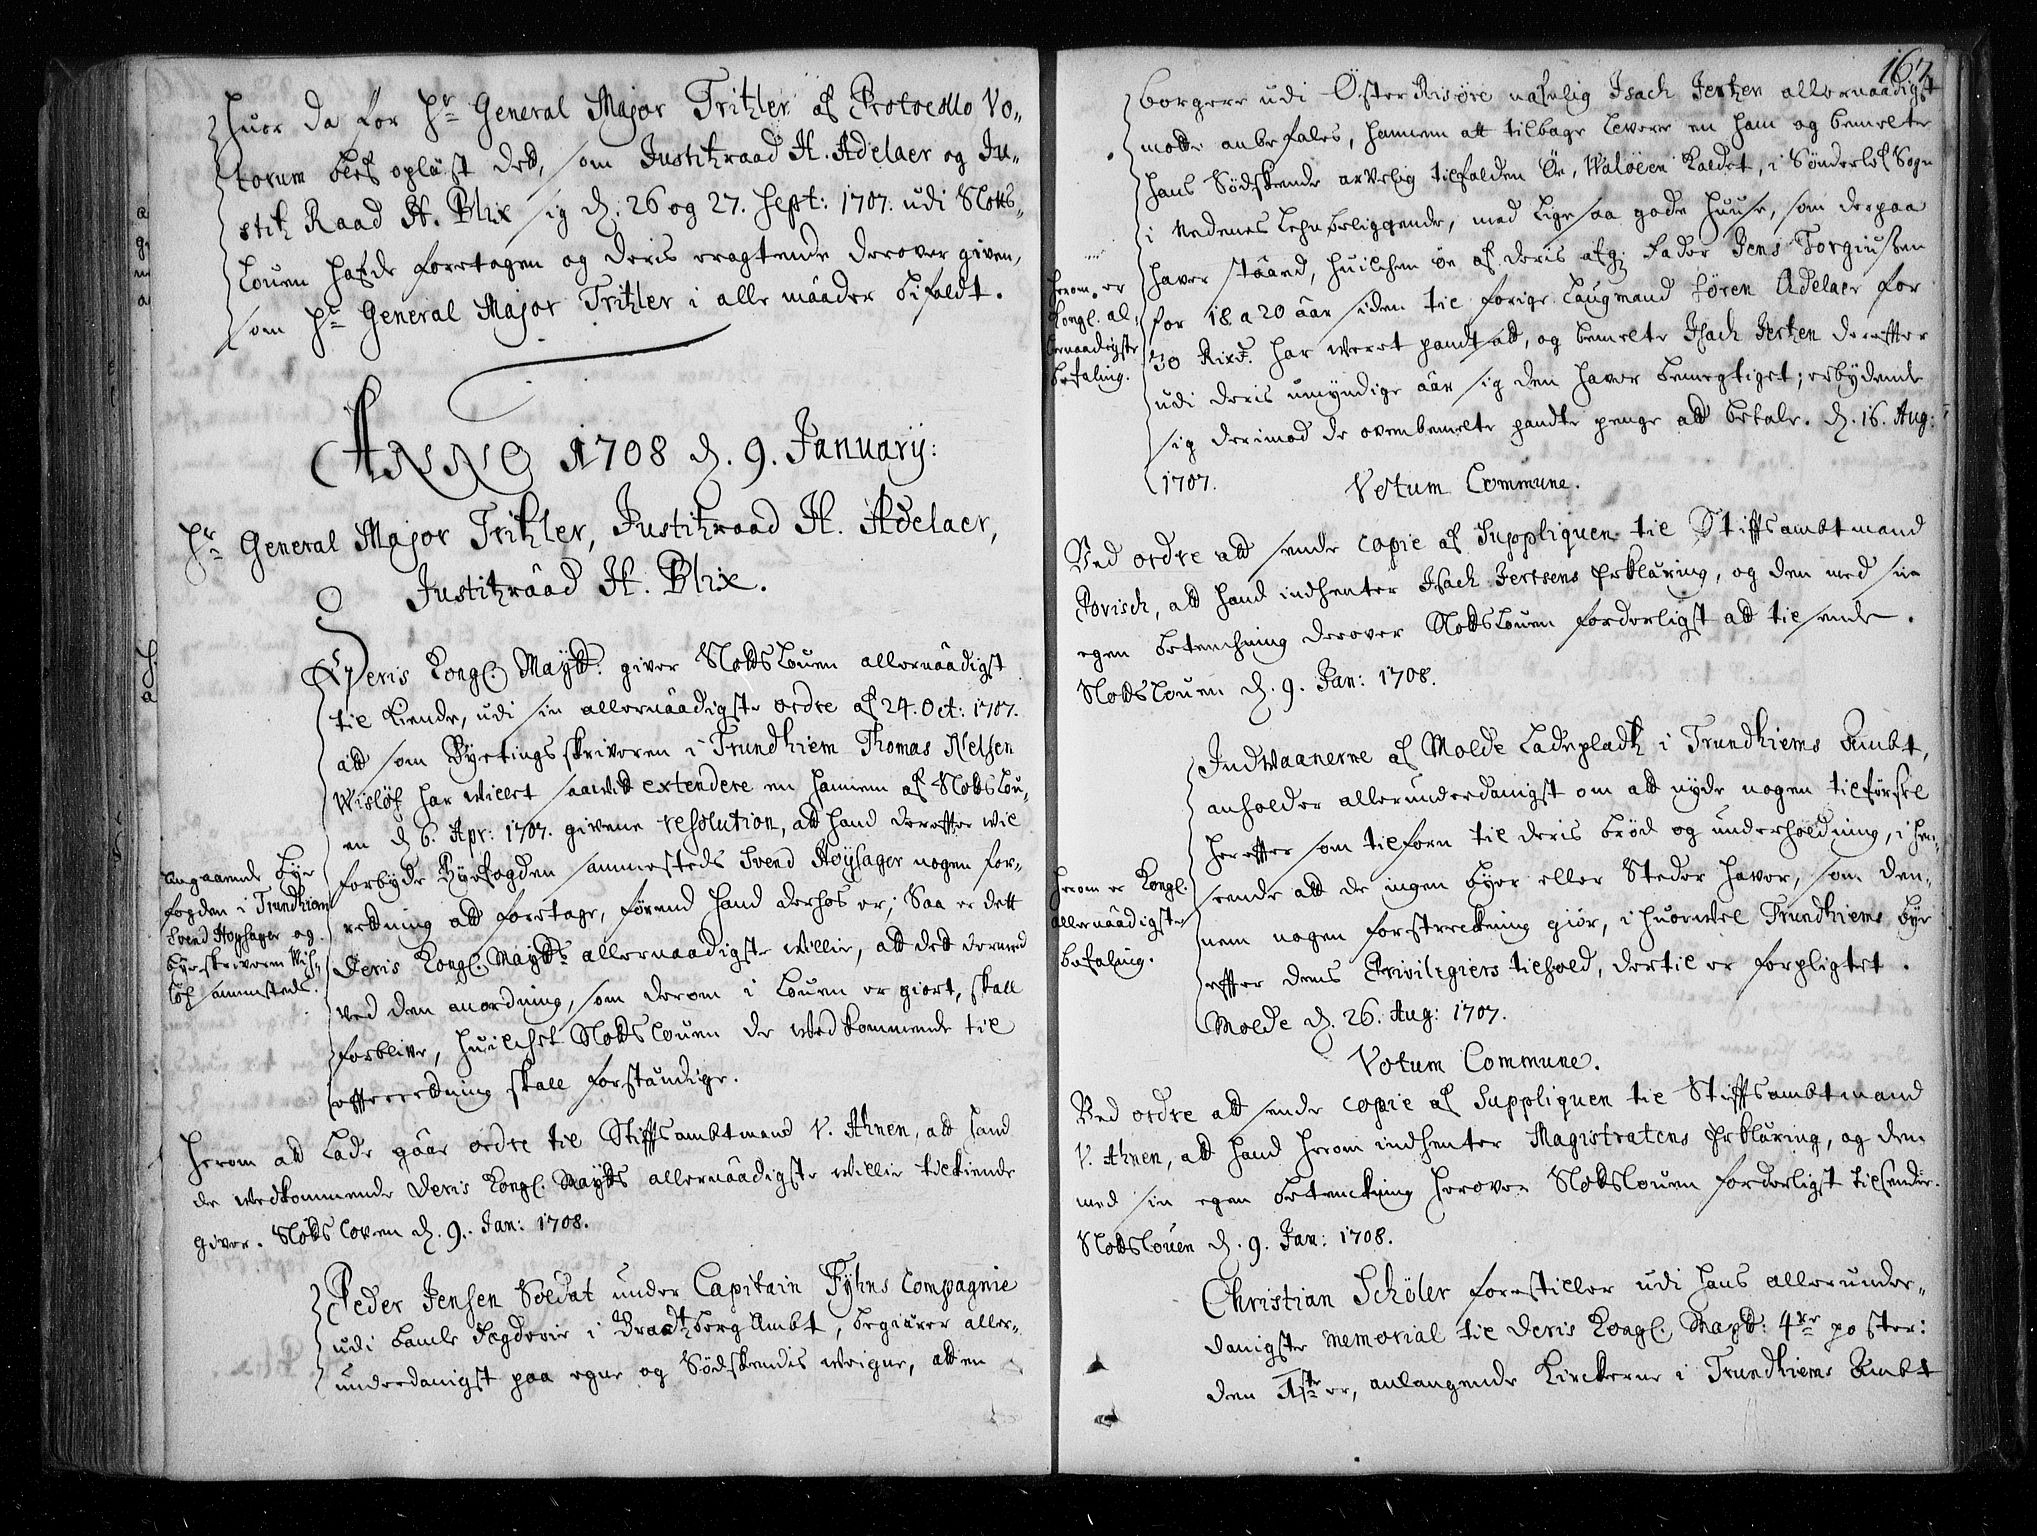 Huor da for Hr General Major Tritzler af Protocollo Vo-
torum blef opläst ded, som Justitzraad H. Adelaer og Ju-
stitz Raad H. Blix sig d. 26 og 27. Sept: 1707. udi Slotts-
Louen hafde foretagen og deris eragtende derover given,
som Hr General Major Tritzler i alle måader bifaldt.
ANNO 1708 d. 9. Januarij:
Hr General Major Tritzler, Justitzraad H. Adelaer,
Justitzråad H. Blix.
Deris Kongl. Maytt. giver Slottslouen allernåadigst
til Kiende, udi sin allernåadigste ordre af 24. Oct: 1707.
att som Byetingsskriveren i Trundhiem Thomas Nelsen
Wisløf har villet saavit extendere en hannem af Slottslou-
en d 6. Apr: 1707. givene resolution, att hand derefter vil
forbyde Byefogden sammesteds Svend Høysager nogen for-
retning att foretage, førend hand derhos er; Saa er dett
Deris Kongl. Maytts allernaadigste willie, att det dermed
ved den anordning, som derom i Louen er giort, skall
forblive, huilchet Slottslouen de wedkommende til
efterretning skall forständige.
Angaaende bye
fogden i Trundhiem
Svend Høysager og
byeskriveren Wis-
løf sammesteds.
Herom att lade gåar ordre til Stiftsambtmand V. Ahnen, att hand
de wedkommende Deris Kongl. Maytts allernåadigste willie tilkiende
giver. Slottsloven d. 9. Jan: 1708.
Peder Jensen Soldat under Capitain Fyhns Compagnie
udi Bamle Fogderie i Bradtzberg Ambt, begiærer aller-
underdanigst paa egne og Södskendis weigne, att en
167
borgere udi Øster Risøre nafnlig Isach Jertzen allernaadigst
motte anbefales, hannem att tilbage levere en ham og bemelte
hans Södskende arvelig tilfalden Öe, Walöeen kaldet, i Sönderløf Sogn
i Nedenes Lehn beliggende, med lige saa gode huuse, som derpaa
haver ståaed, huilchen öe af deris afg: Fader Jens Torgiusßen
for 18 a 20 åar siden til forige Laugmand Sören Adelaer for
30 Rixd. har veret pandtsatt, og bemelte Isach Jertzen derefter
udi deris umyndige åar sig den haver bemegtiget; erbydende
sig derimod de ovenbemelte pandte penge att betale. d. 16. Aug:
1707.
Herom er
Kongl. al-
lernaadigste
befaling.
Votum Commune.
Ved ordre att sende copie af Suppliquen til Stiftsambtmand
Povisch, att hand indhenter Isach Jertsens Erklæring, og den med sin
egen betenchning derover Slottslouen forderligst att tilsende.
Slottslouen d. 9. Jan: 1708.
Indwaanerne af Molde Ladepladtz i Trundhiems Ambt,
anholder allerunderdanigst om att nyde nogen tilförsel
herefter som tilforn til deris bröd og underholdning, i hen-
seende att de ingen byer eller Steder haver, som den-
nem nogen forstreckning giör, i huorvel Trundhiems bye
efter dens Privilegiers tilhold, dertil er forpligtet.
Molde d. 26. Aug: 1707.
Herom er Kongl.
allernåadigste
befaling.
Votum Commune.
Ved ordre att sende copie af Suppliquen til Stiftsambtmand
V. Ahnen, att hand herom indhenter Magistratens Erklæring, og den
med sin egen betenckning herover Slottslouen forderligst tilsender.
Slottslouen d. 9. Jan: 1708.
Christian Schöler forestiller udi hans allerunder-
danigste memorial til Deris Kongl. Maytt: 4re poster:
den 1ste er, anlangende Kirckerne i Trundhiems Ambt